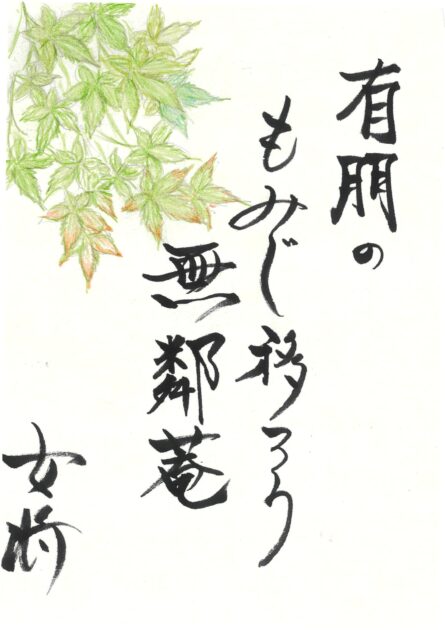 有朋の
もみじ移ろう
無鄰菴
女将